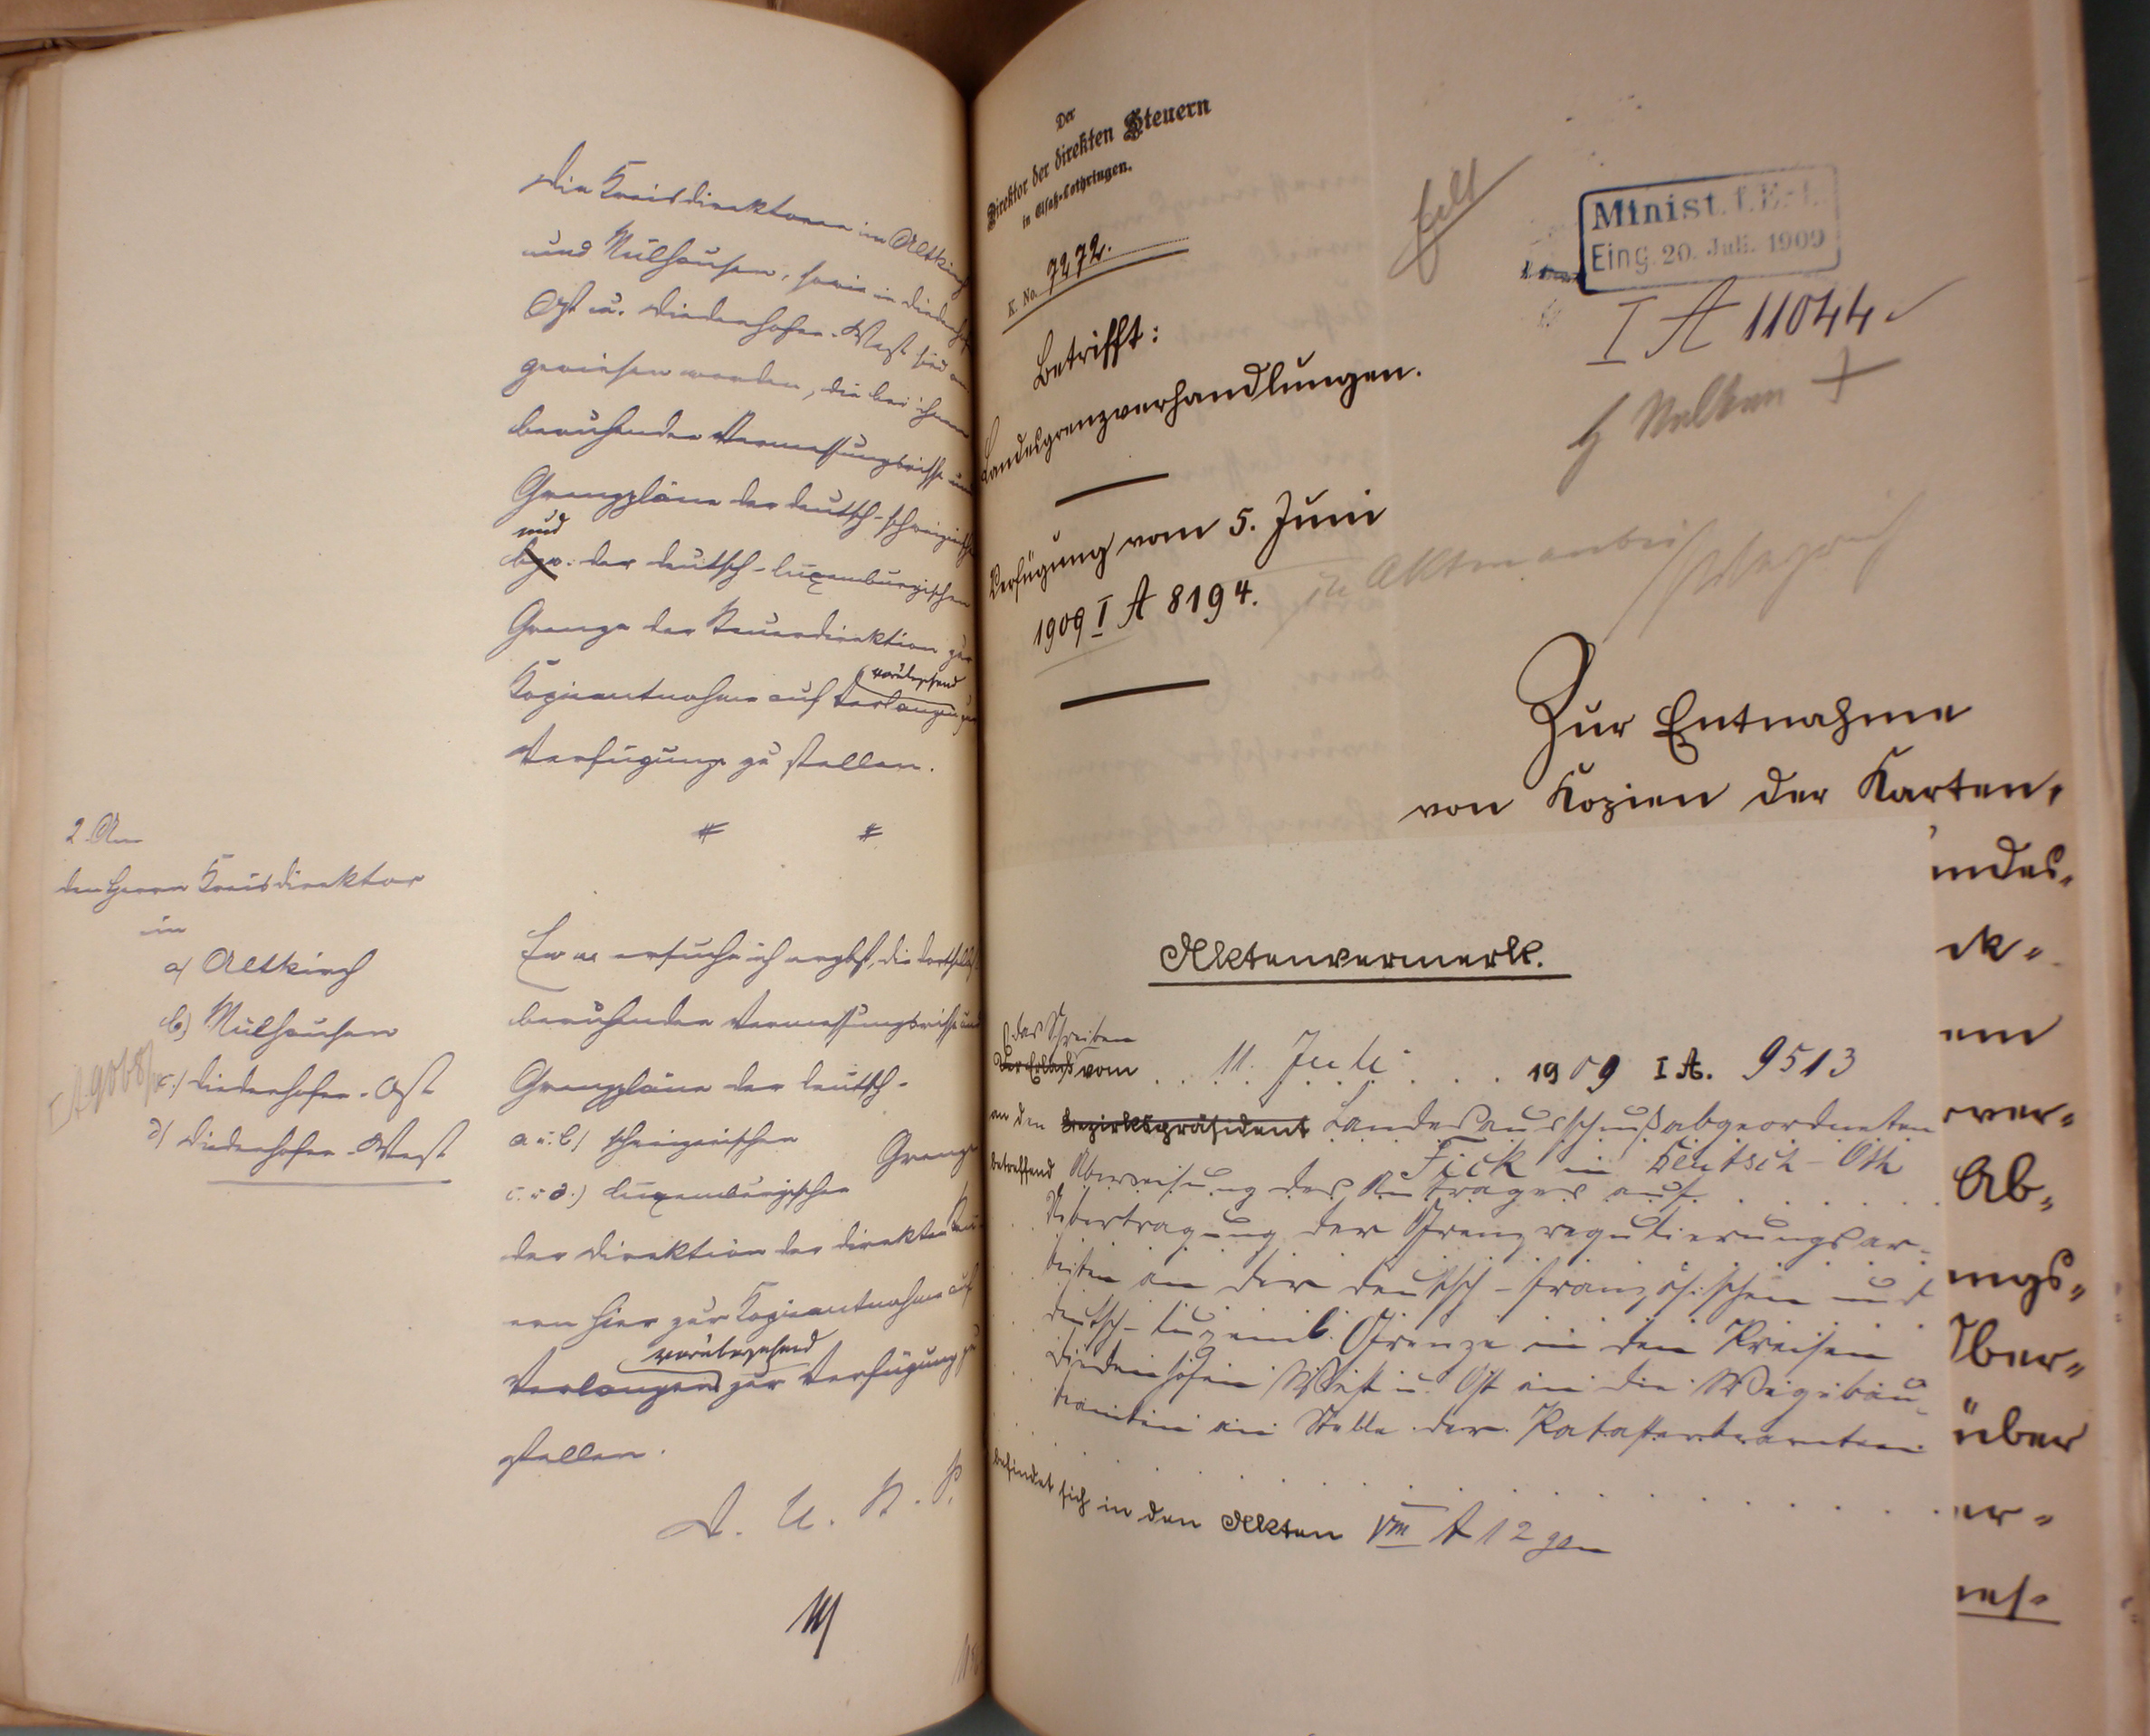 Die Kreisdirektoren in Altkirch
und Mülhausen, sowie in Diedenhof.
Ost u. Diedenhofen-West sind an-
gewiesen worden, die bei ihnen
beruhenden Vermessungsrisse und
Grenzpläne der deutsch-schweizerischen
und
bzw. der deutsch-luxemburgischen
Grenze der Steuerdirektion zur
vorübergehend
Kopieentnahme auf Verlangen zur
Verfügung zu stellen.
2. An
den Herrn Kreisdirektor
in
a) Altkirch
b) Mülhausen
c.) Diedenhofen-Ost
d) Diedenhofen-West
I A 9068
Ew. ersuche ich ergbst, die dortselbst
beruhenden Vermessungsrisse und
Grenzpläne der deutsch-
a u. b) schweizerischen Grenze
c. u. d.) luxemburgischen
der Direktion der direkten Steu-
ern hier zur Kopieentnahme auf
vorübergehend
Verlangen zur Verfügung zu
stellen.
D. U. St. S.
Der
Direktor der direkten Steuern
in Elsaß-Lothringen.
K. No. 7272.
Betrifft:
Landesgrenzverhandlungen.
Verfügung vom 5. Juni
1909 I A 8194.
Minist. f. E.-L.
Eing. 20. Juli. 1909
I A 11044
Zur Entnahme
von Kopien der Karten,
Aktenvermerk.
das Schreiben
Der Erlaß vom 11. Juli 1909 I A. 9513
an den Bezirkspräsident Landesausschußabgeordneten
Fick in Deutsch-Oth
betreffend Überweisung des Antrages auf
Übertragung der Grenzregulierungsar-
beiten an der deutsch-französischen und
deutsch-luxemb. Grenze in den Kreisen
Diedenhofen West u. Ost an die Wegebau-
beamten an Stelle der Katasterbeamten
befindet sich in den Akten VIII A 12 gen
undes,
ck,
em
rver,
Ab,
ngs,
Über,
über
er,